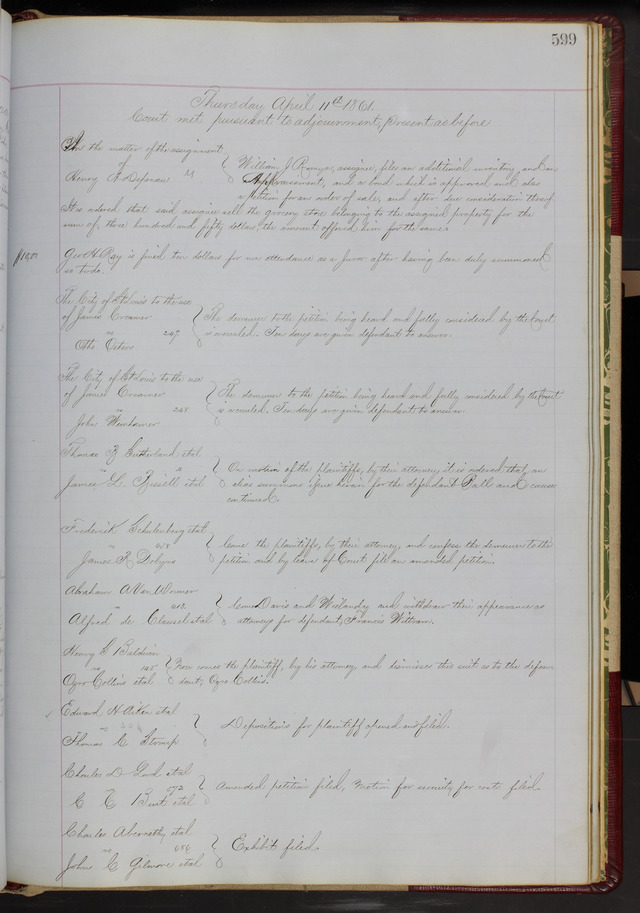 599
Thursday April 11th 1861.
Court met pursuant to adjournment, present as before
In the matter of the assignment
of
Henry
William J. assignee, files an additional inventory, and an
Appraisement, and a bond which is approved and also
a petition for an order of sale, and after due consideration thereof
It is ordered that said assignee sell the grocery store belonging to the assigned property for the
sum of three hundred and fifty dollars the amount offered him for the same.
Geo H. Ray is fined ten dollars for non attendance as a Juror after having been duly summoned
so to do.
The City of St Louis to the use
of James Creamer
vs 247
Otto
The demurrer to the petition being heard and fully considered by the Court
is overruled. Ten days are given defendant to answer.
The City of St Louis to the use
of James Creamer
vs 248
John
The demurrer to the petition being heard and fully considered by the Court
is overruled. Ten days are given defendant to answer.
Thomas Sutherland etal
vs
James L. Bissell etal
On motion of the plaintiffs, by their attorney, it is ordered that, an
alias summons issue herein for the defendant and cause
continued.
Frederick Schulenburg etal
vs
James R Dobyns
Come the plaintiffs, by their attorney, and confess the demurrer to the
petition and by leave of Court file an amended petition.
Abraham A. Van Wormer
vs 613
Alfred de etal
Come Davis and and withdraw their appearance as
attorneys for defendant, Francis
Henry S Baldwin
vs 145
Ogro Collins etal
Now comes the plaintiff, by his attorney, and dismisses this suit as to the defen
dant, Ogro Collins.
Edward H Aiken etal
vs
Thomas C
Depositions for plaintiff opened and filed.
Charles D etal
vs 572
C C etal
Amended petition filed, Motion for security for costs filed.
Charles Abernathy etal
vs 656
John C Gilmore etal
Exhibit filed.